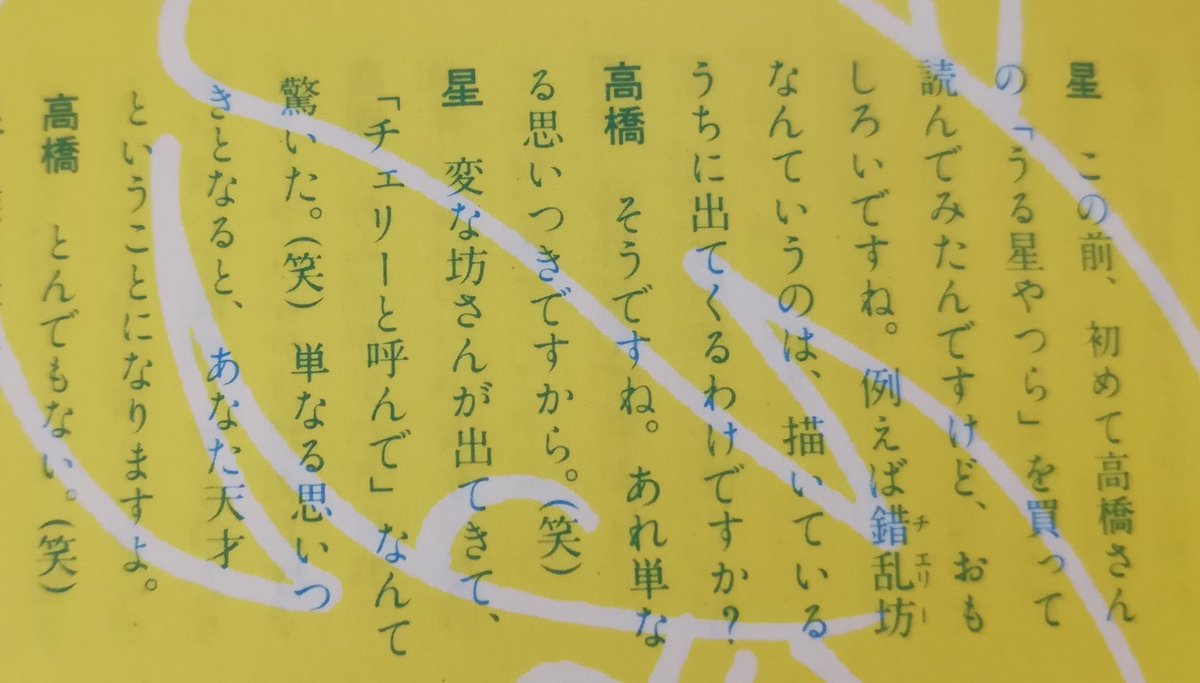 星　この前、初めて高橋さん
の「うる星やつら」を買って
読んでみたんですけど、おも
しろいですね。例えば錯乱坊
チェリー
なんていうのは、描いている
うちに出てくるわけですか?
高橋　そうですね。あれ単な
る思いつきですから。(笑)
星　変な坊さんが出てきて、
「チェリーと呼んで」なんて
驚いた。(笑) 単なる思いつ
きとなると、あなた天才
ということになりますよ。
高橋　とんでもない。(笑)